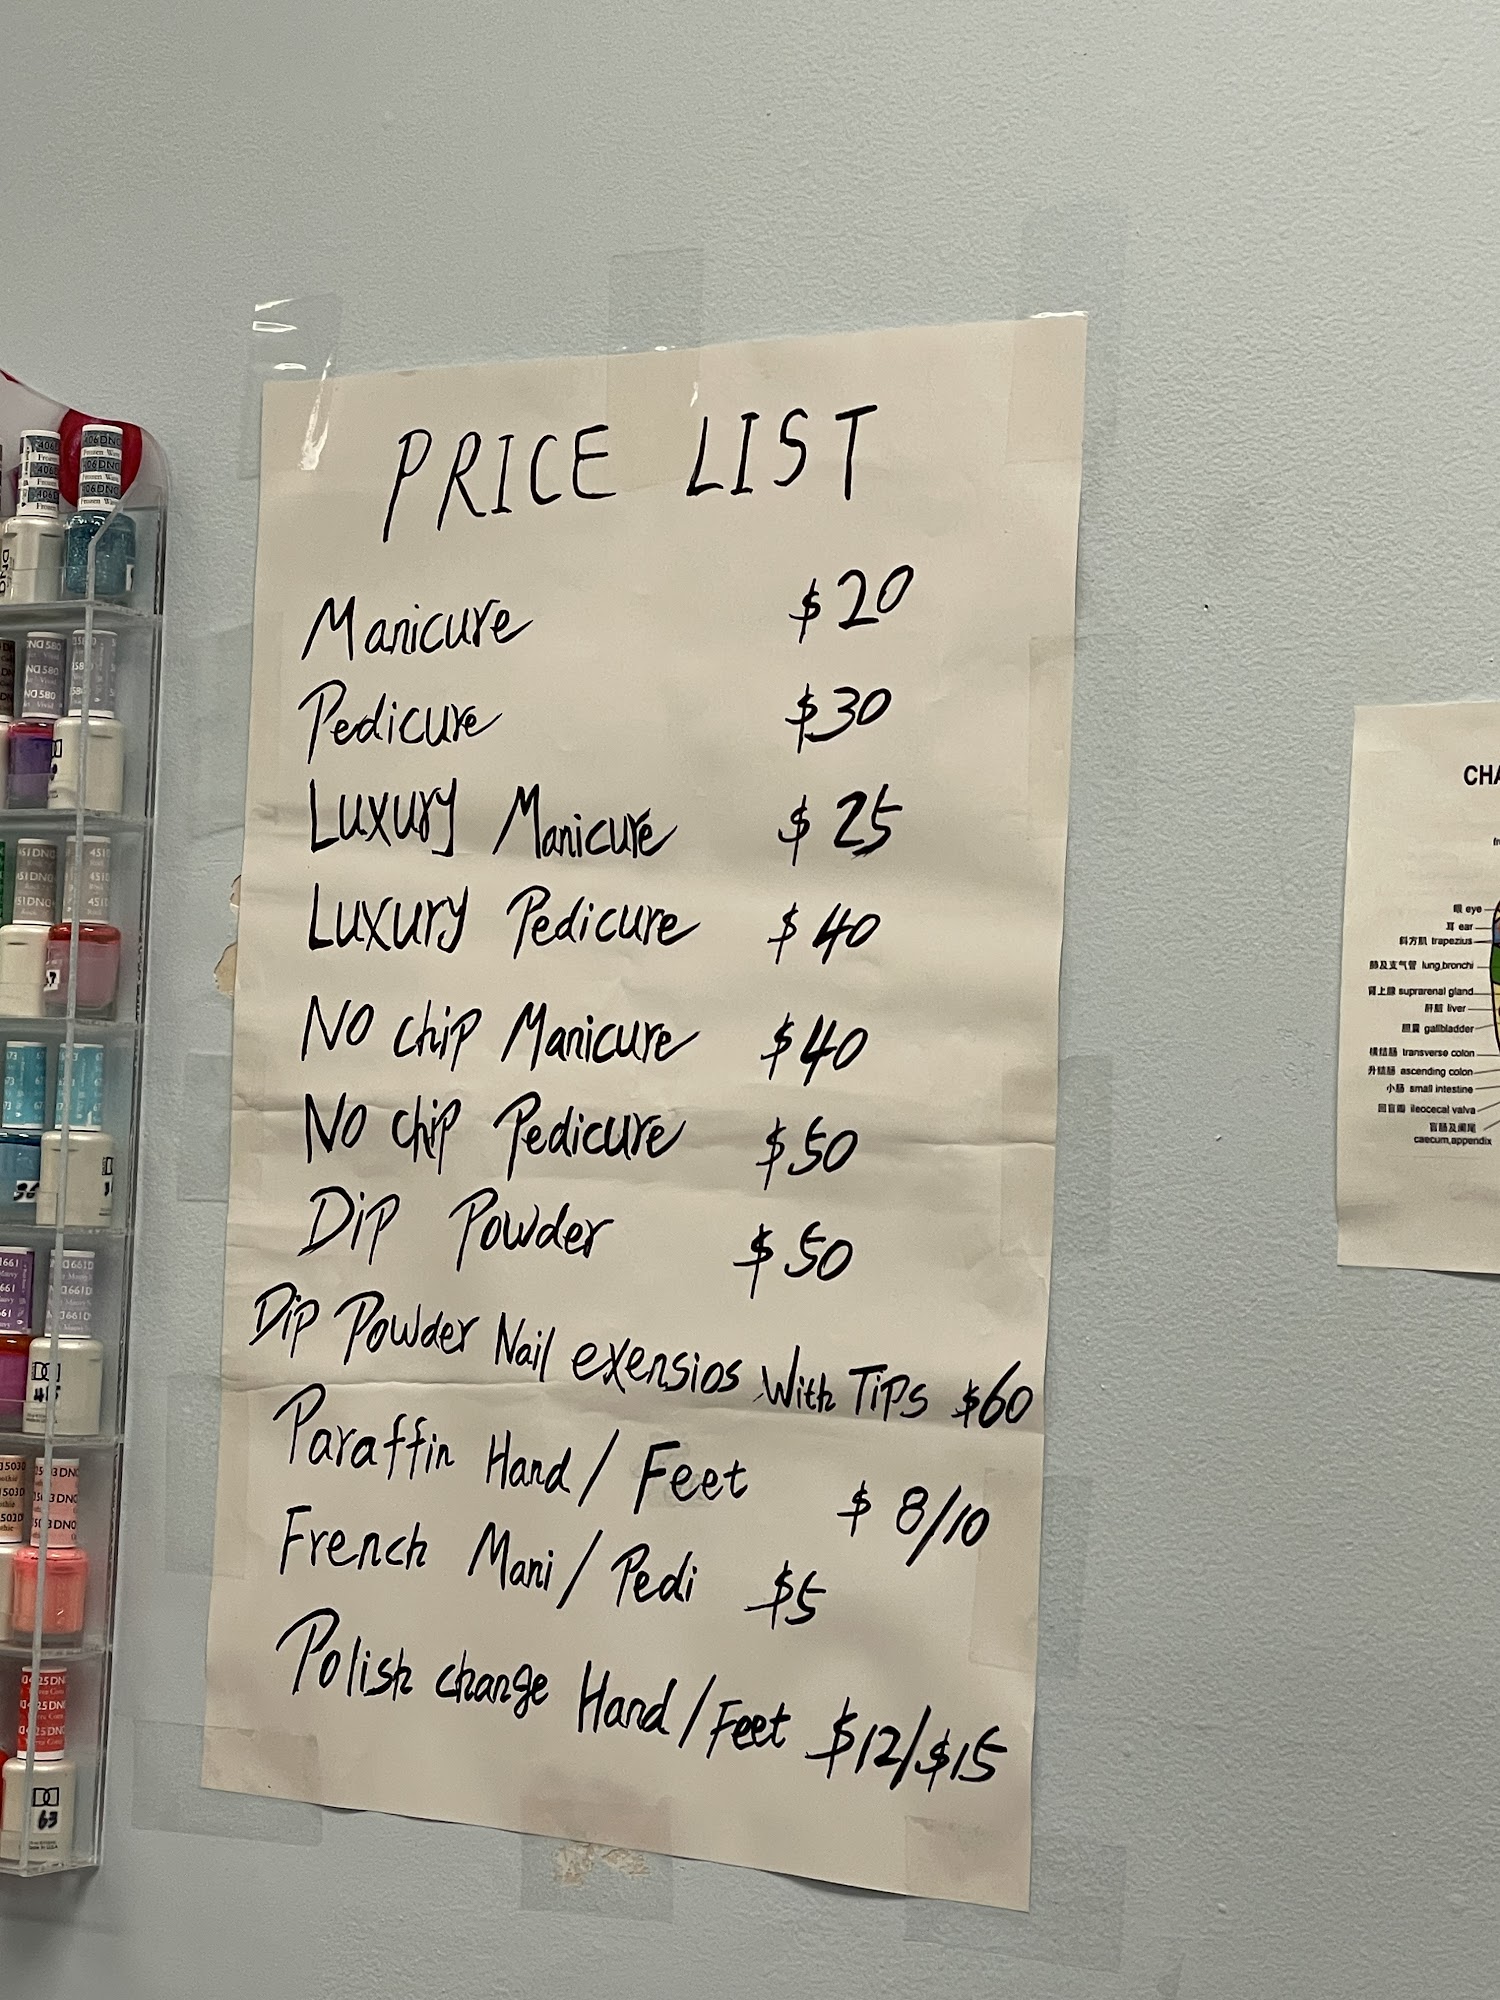 PRICE LIST
Manicure $20
Pedicure $30
Luxury Manicure $25
Luxury Pedicure $40
No chip Manicure $40
No chip Pedicure $50
Dip Powder $50
Dip Powder Nail exensios With Tips $60
Paraffin Hand/Feet $8/10
French Mani/Pedi $5
Polish change Hand/Feet $12/$15
CHA
眼 eye
耳 ear
斜方肌 trapezius
肺及支气管 lung,bronchi
肾上腺 suprarenal gland
肝脏 liver
胆囊 gallbladder
横结肠 transverse colon
升结肠 ascending colon
小肠 small intestine
回盲瓣 ileocecal valva
盲肠及阑尾
caecum,appendix
406DNC
406DNC
406DNC
ND580
ND580
ND580
451DN
451D
451D
673
673
661
661
661
661D
661D
661D
503DNC
503DNC
503DNC
25DN
25DN
25DN
DND
63